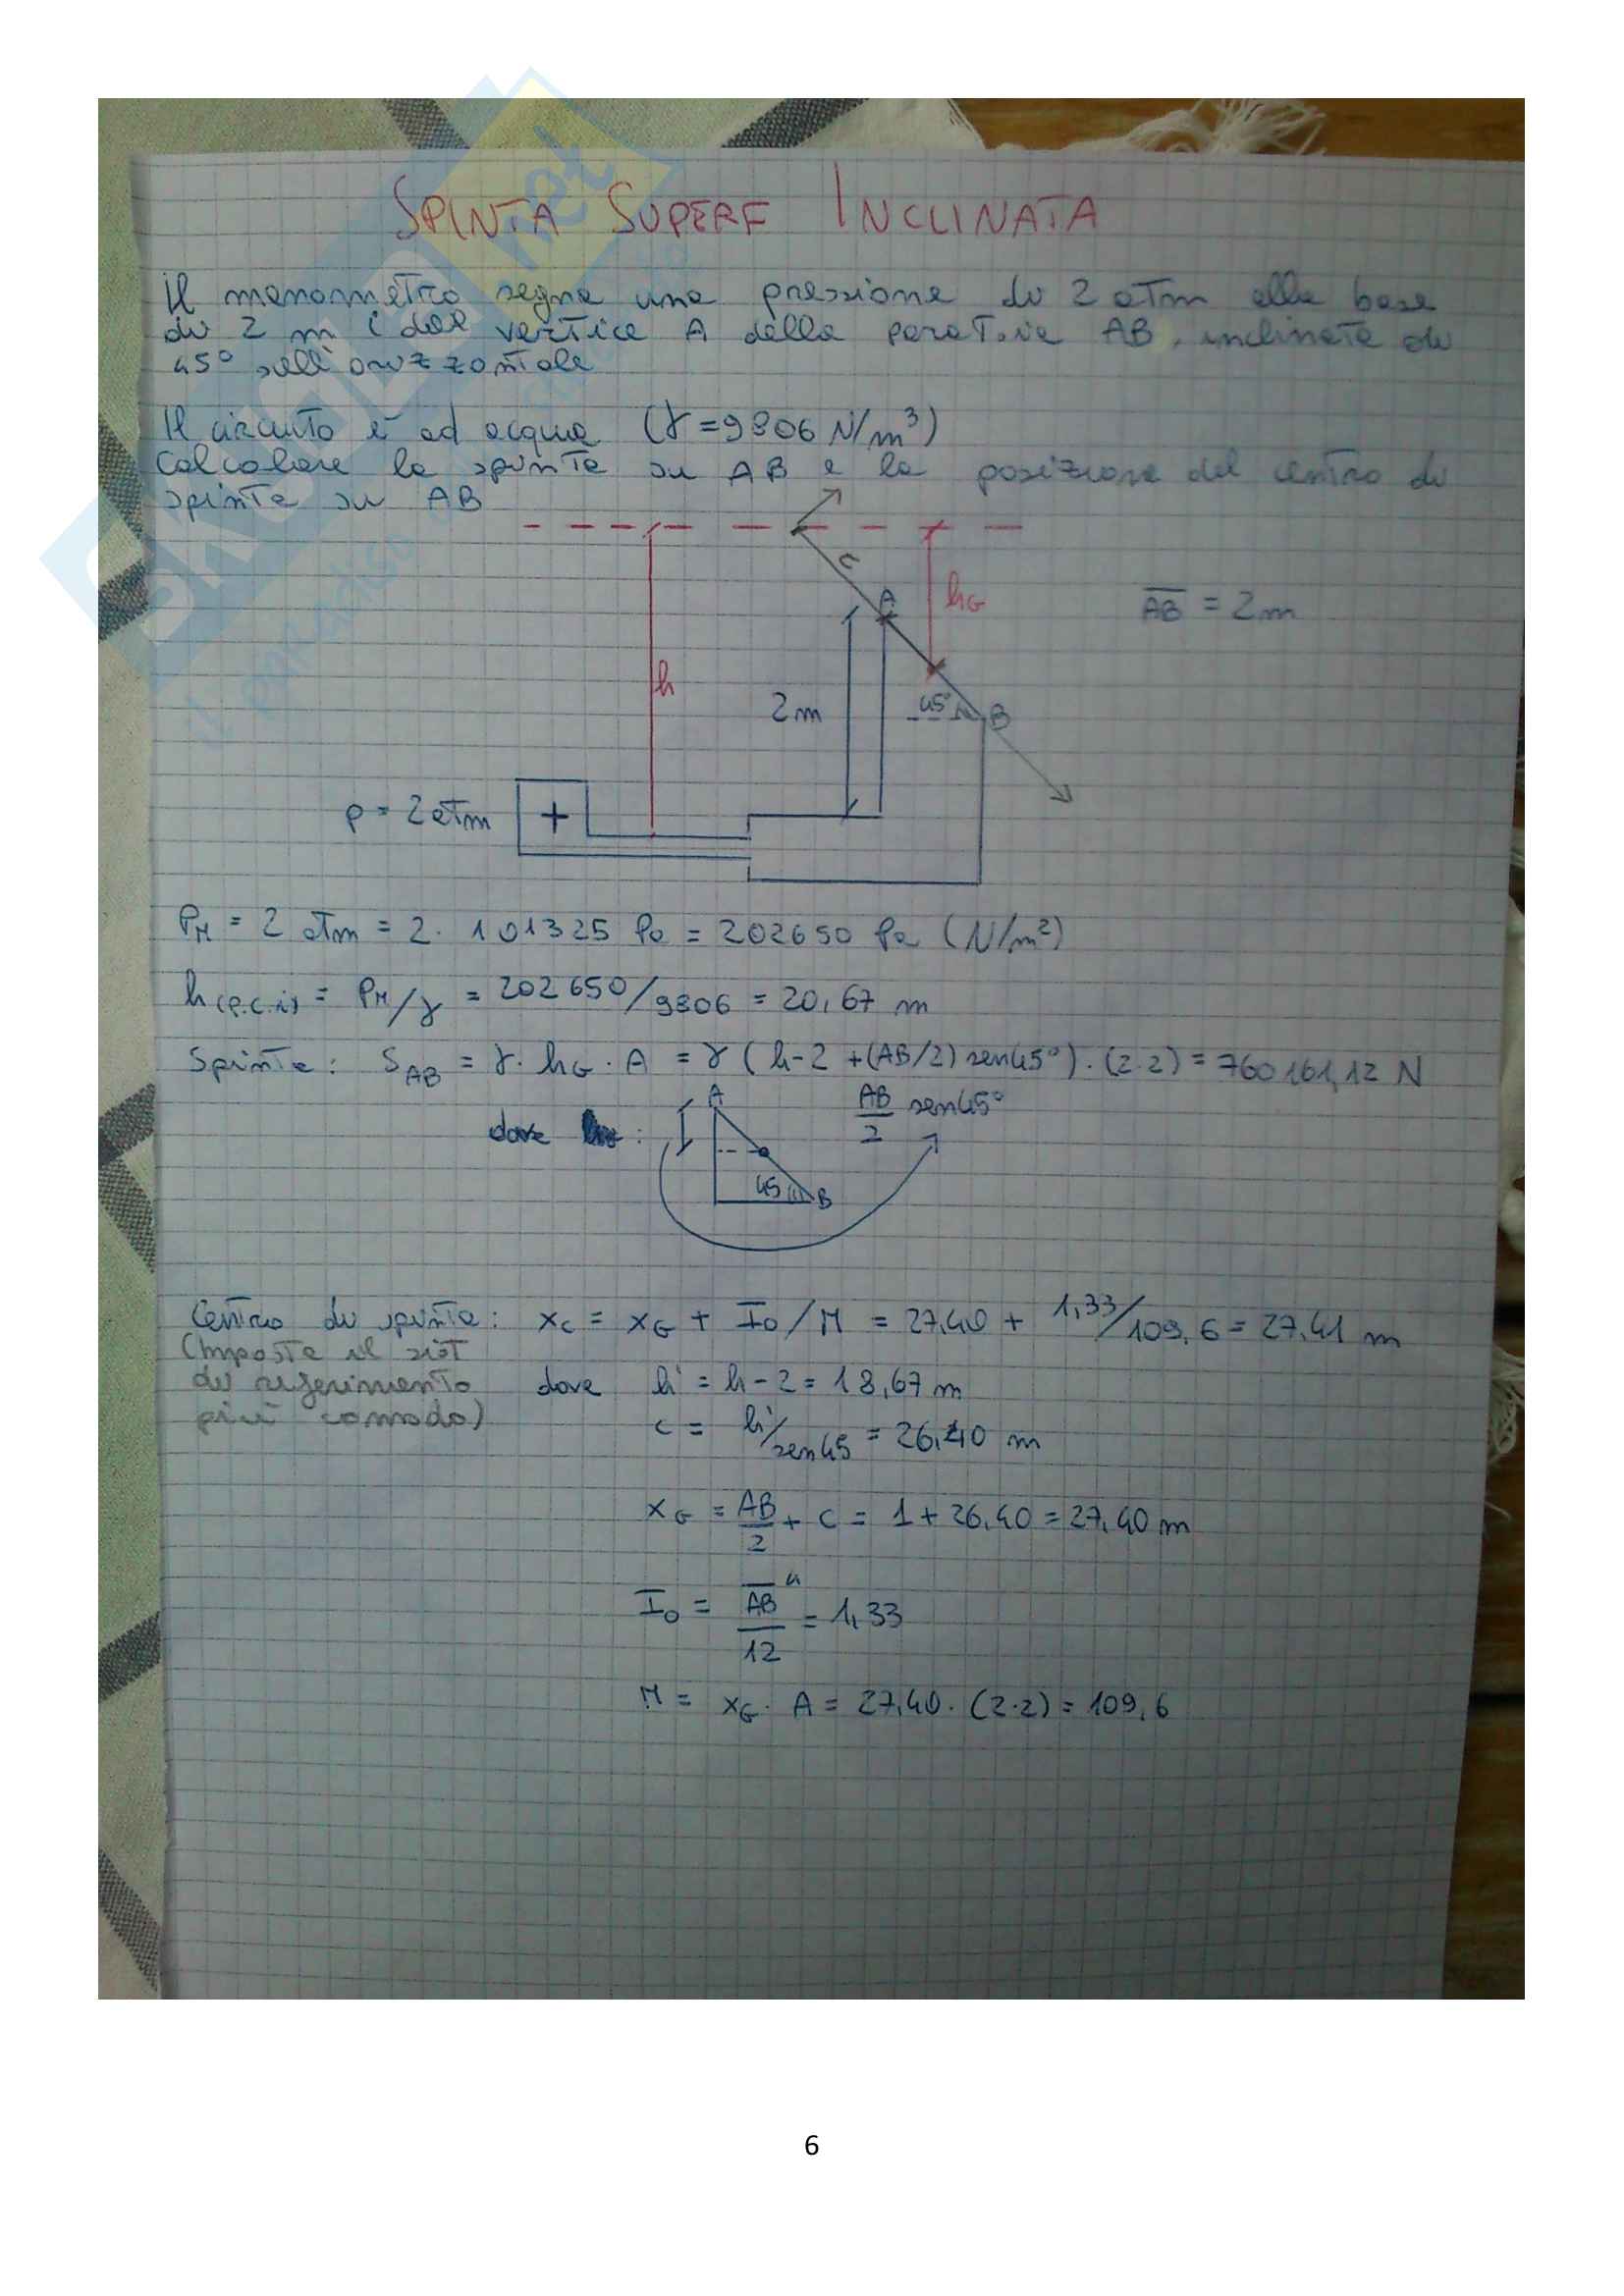 SPINTA SUPERF INCLINATA
Il manometro segna una pressione di 2 atm alla base
di 2 m dal vertice A della paratoia AB, inclinata di
45° sull'orizzontale
Il circuito è ad acqua (γ = 9806 N/m³)
Calcolare la spinta su AB e la posizione del centro di
spinta su AB
c
A
hG
AB = 2m
h
2m
45°
B
p = 2 atm
+
PM = 2 atm = 2 · 101325 Pa = 202650 Pa (N/m²)
h(p.c.i) = PM/γ = 202650/9806 = 20,67 m
Spinta: SAB = γ · hG · A = γ (h-2 +(AB/2) sen45°) · (2·2) = 760161,12 N
A
AB/2 sen45°
dove :
45
B
Centro di spinta: xC = xG + I0/M = 27,40 + 1,33/109,6 = 27,41 m
(Imposta il sist
di riferimento dove h' = h-2 = 18,67 m
più comodo)
c = h'/sen45 = 26,40 m
xG = AB/2 + c = 1 + 26,40 = 27,40 m
I0 = AB⁴/12 = 1,33
M = xG · A = 27,40 · (2·2) = 109,6
6
SKUOLA.net
il paradiso